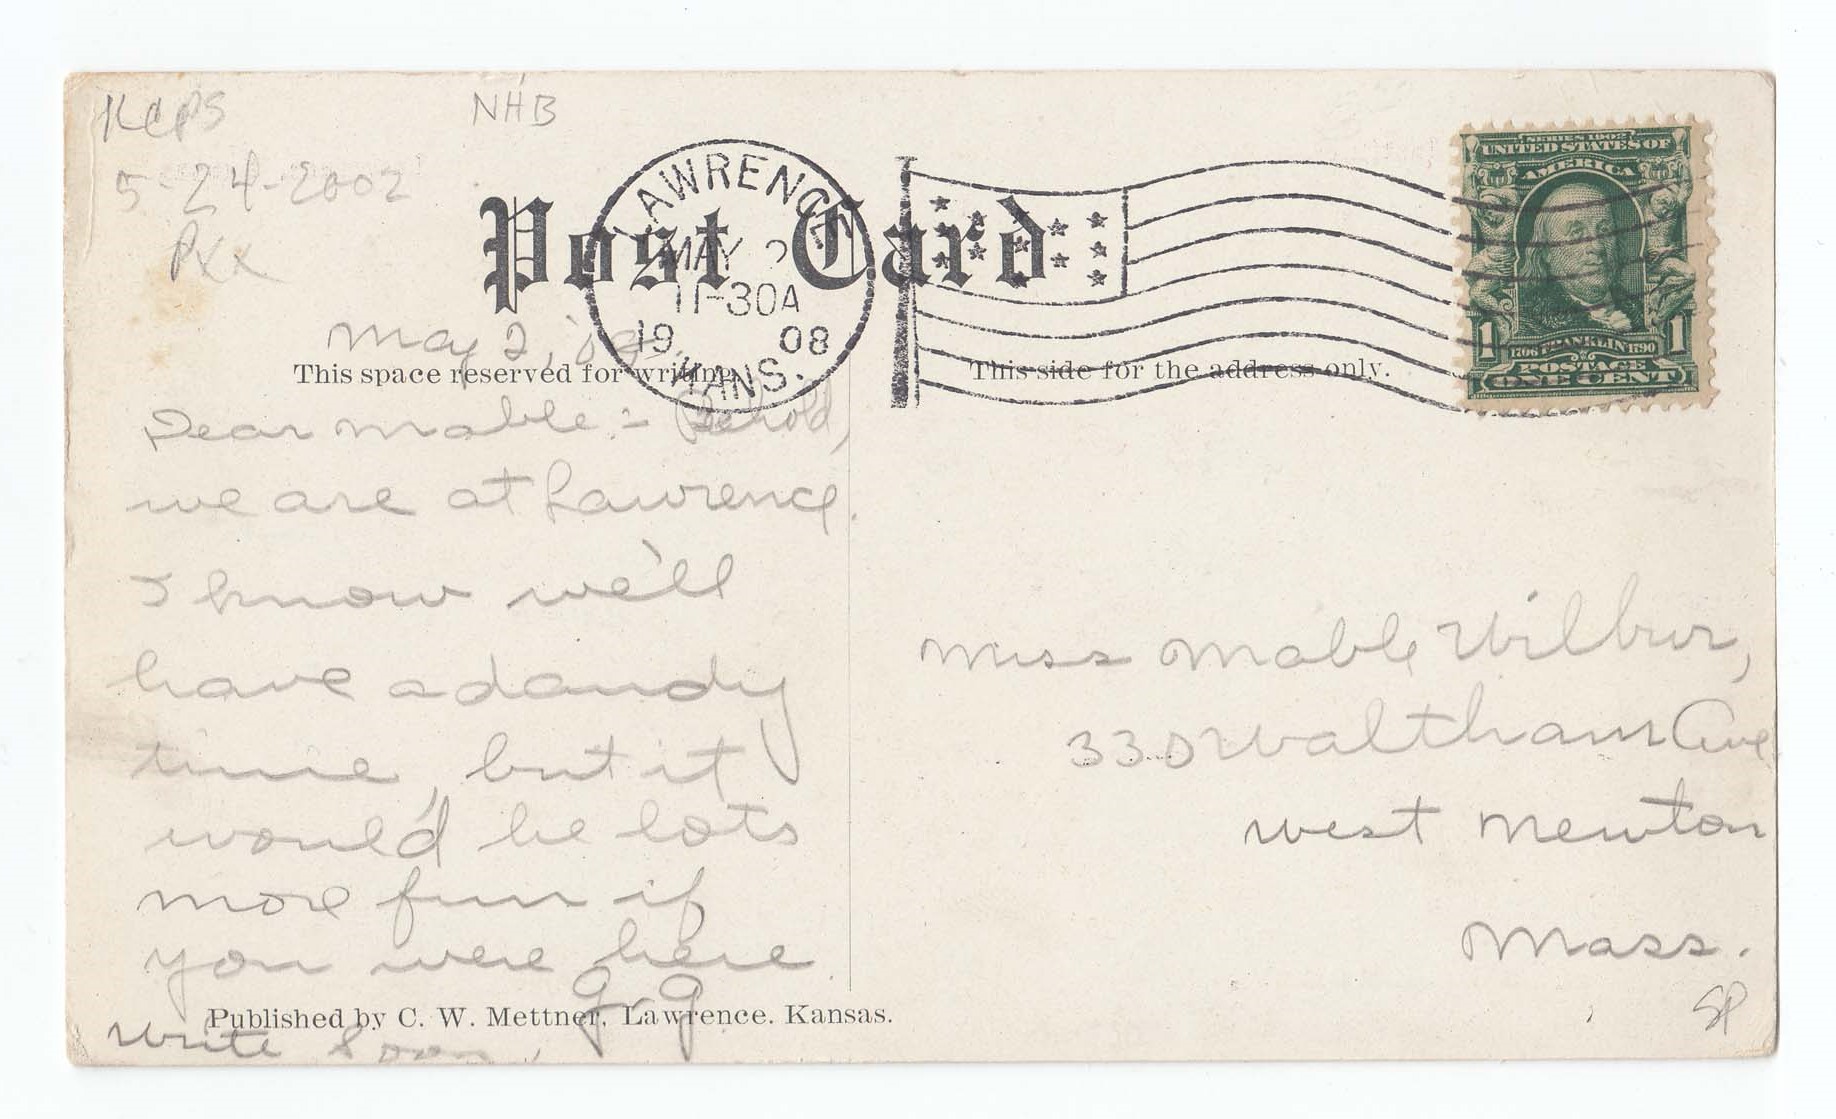 KCPS
NHB
5-24-2002
PXX
Post Card
LAWRENCE
MAY 2
11-30A
19 08
KANS.
SERIES 1902
UNITED STATES OF
AMERICA
1 1
1706 FRANKLIN 1790
POSTAGE
ONE CENT
May 2,
This space reserved for writing.
This side for the address only.
Dear Mable:- Behold,
we are at Lawrence.
I know we'll
have a dandy
time, but it
would be lots
more fun if
you were here
G. G.
Write Soon,
Miss Mable Wilbur,
330 Waltham Ave
West Newton
Mass.
SP
Published by C. W. Mettner, Lawrence. Kansas.